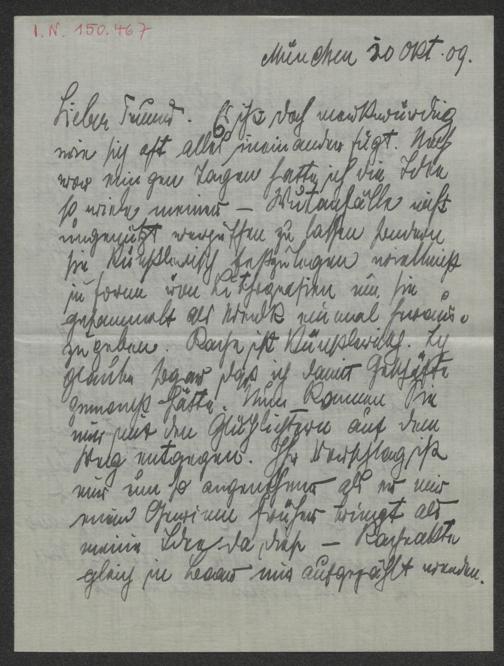 I.N. 150.467
München 20 Okt. 09.
Lieber Freund. Es ist doch merkwürdig
wie sich oft alles ineinander fügt. Noch
vor einigen Tagen hatte ich die Idee
so viele meiner – Wutanfälle nicht
ungenützt verpuffen zu lassen sondern
sie künstlerisch festzulegen vielleicht
in Form von Lithografien um sie
gesammelt als Werk einmal heraus-
zugeben. Rache ist künstlerisch. Ich
glaube sogar daß ich damit Geschäfte
gemacht hätte. Nun kommen Sie
mir mit den Glühlichtern auf dem
Weg entgegen. Ihr Vorschlag ist
mir um so angenehmer als er mir
einen Gewinn früher bringt als
meine Idee da diese – Racheakte
gleich in baar mir aufgezählt werden.